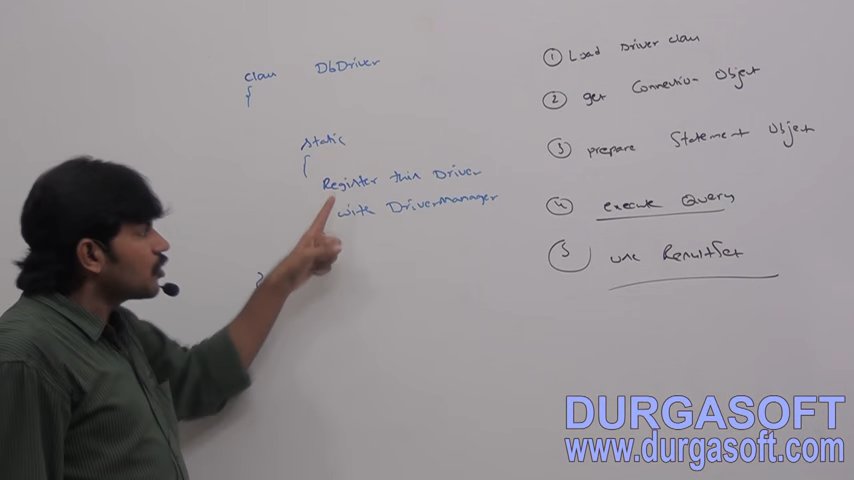 class DbDriver
{
static
{
Register this Driver
with DriverManager
}
① Load Driver class
② get Connection Object
③ prepare Statement Object
④ execute Query
⑤ use ResultSet
DURGASOFT
www.durgasoft.com